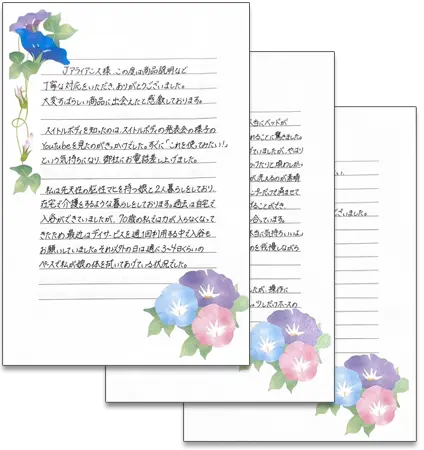 Jアライアンス様 この度は商品説明など
丁寧な対応をいただき、ありがとうございました。
大変すばらしい商品に出会えたと感激しております。
スイトルボディを知ったのは、スイトルボディの発表会の様子の
YouTubeを見たのがきっかけでした。すぐに「これを使ってみたい!」
という気持ちになり、御社にお電話差し上げました。
私は先天性の脳性マヒを持つ娘と2人暮らしをしており、
在宅で介護をするような暮らしをしております。過去は自宅で
入浴ができていましたが、70歳の私では力が入らなくなって
きたため、最近はデイサービスを週1回利用する中で入浴を
お願いしていました。それ以外の日は週に3~4日くらいの
ペースで私が娘の体を拭いてあげている状況でした。
当にベッドが
れることに驚きました。
ていましたが、やはり
が洗えるのが素晴
だけで済ませて
ることができ、
合っています。
本当に気持ちいいよ
のを我慢しながら
たが、操作に
少しだけホースの
ございました。